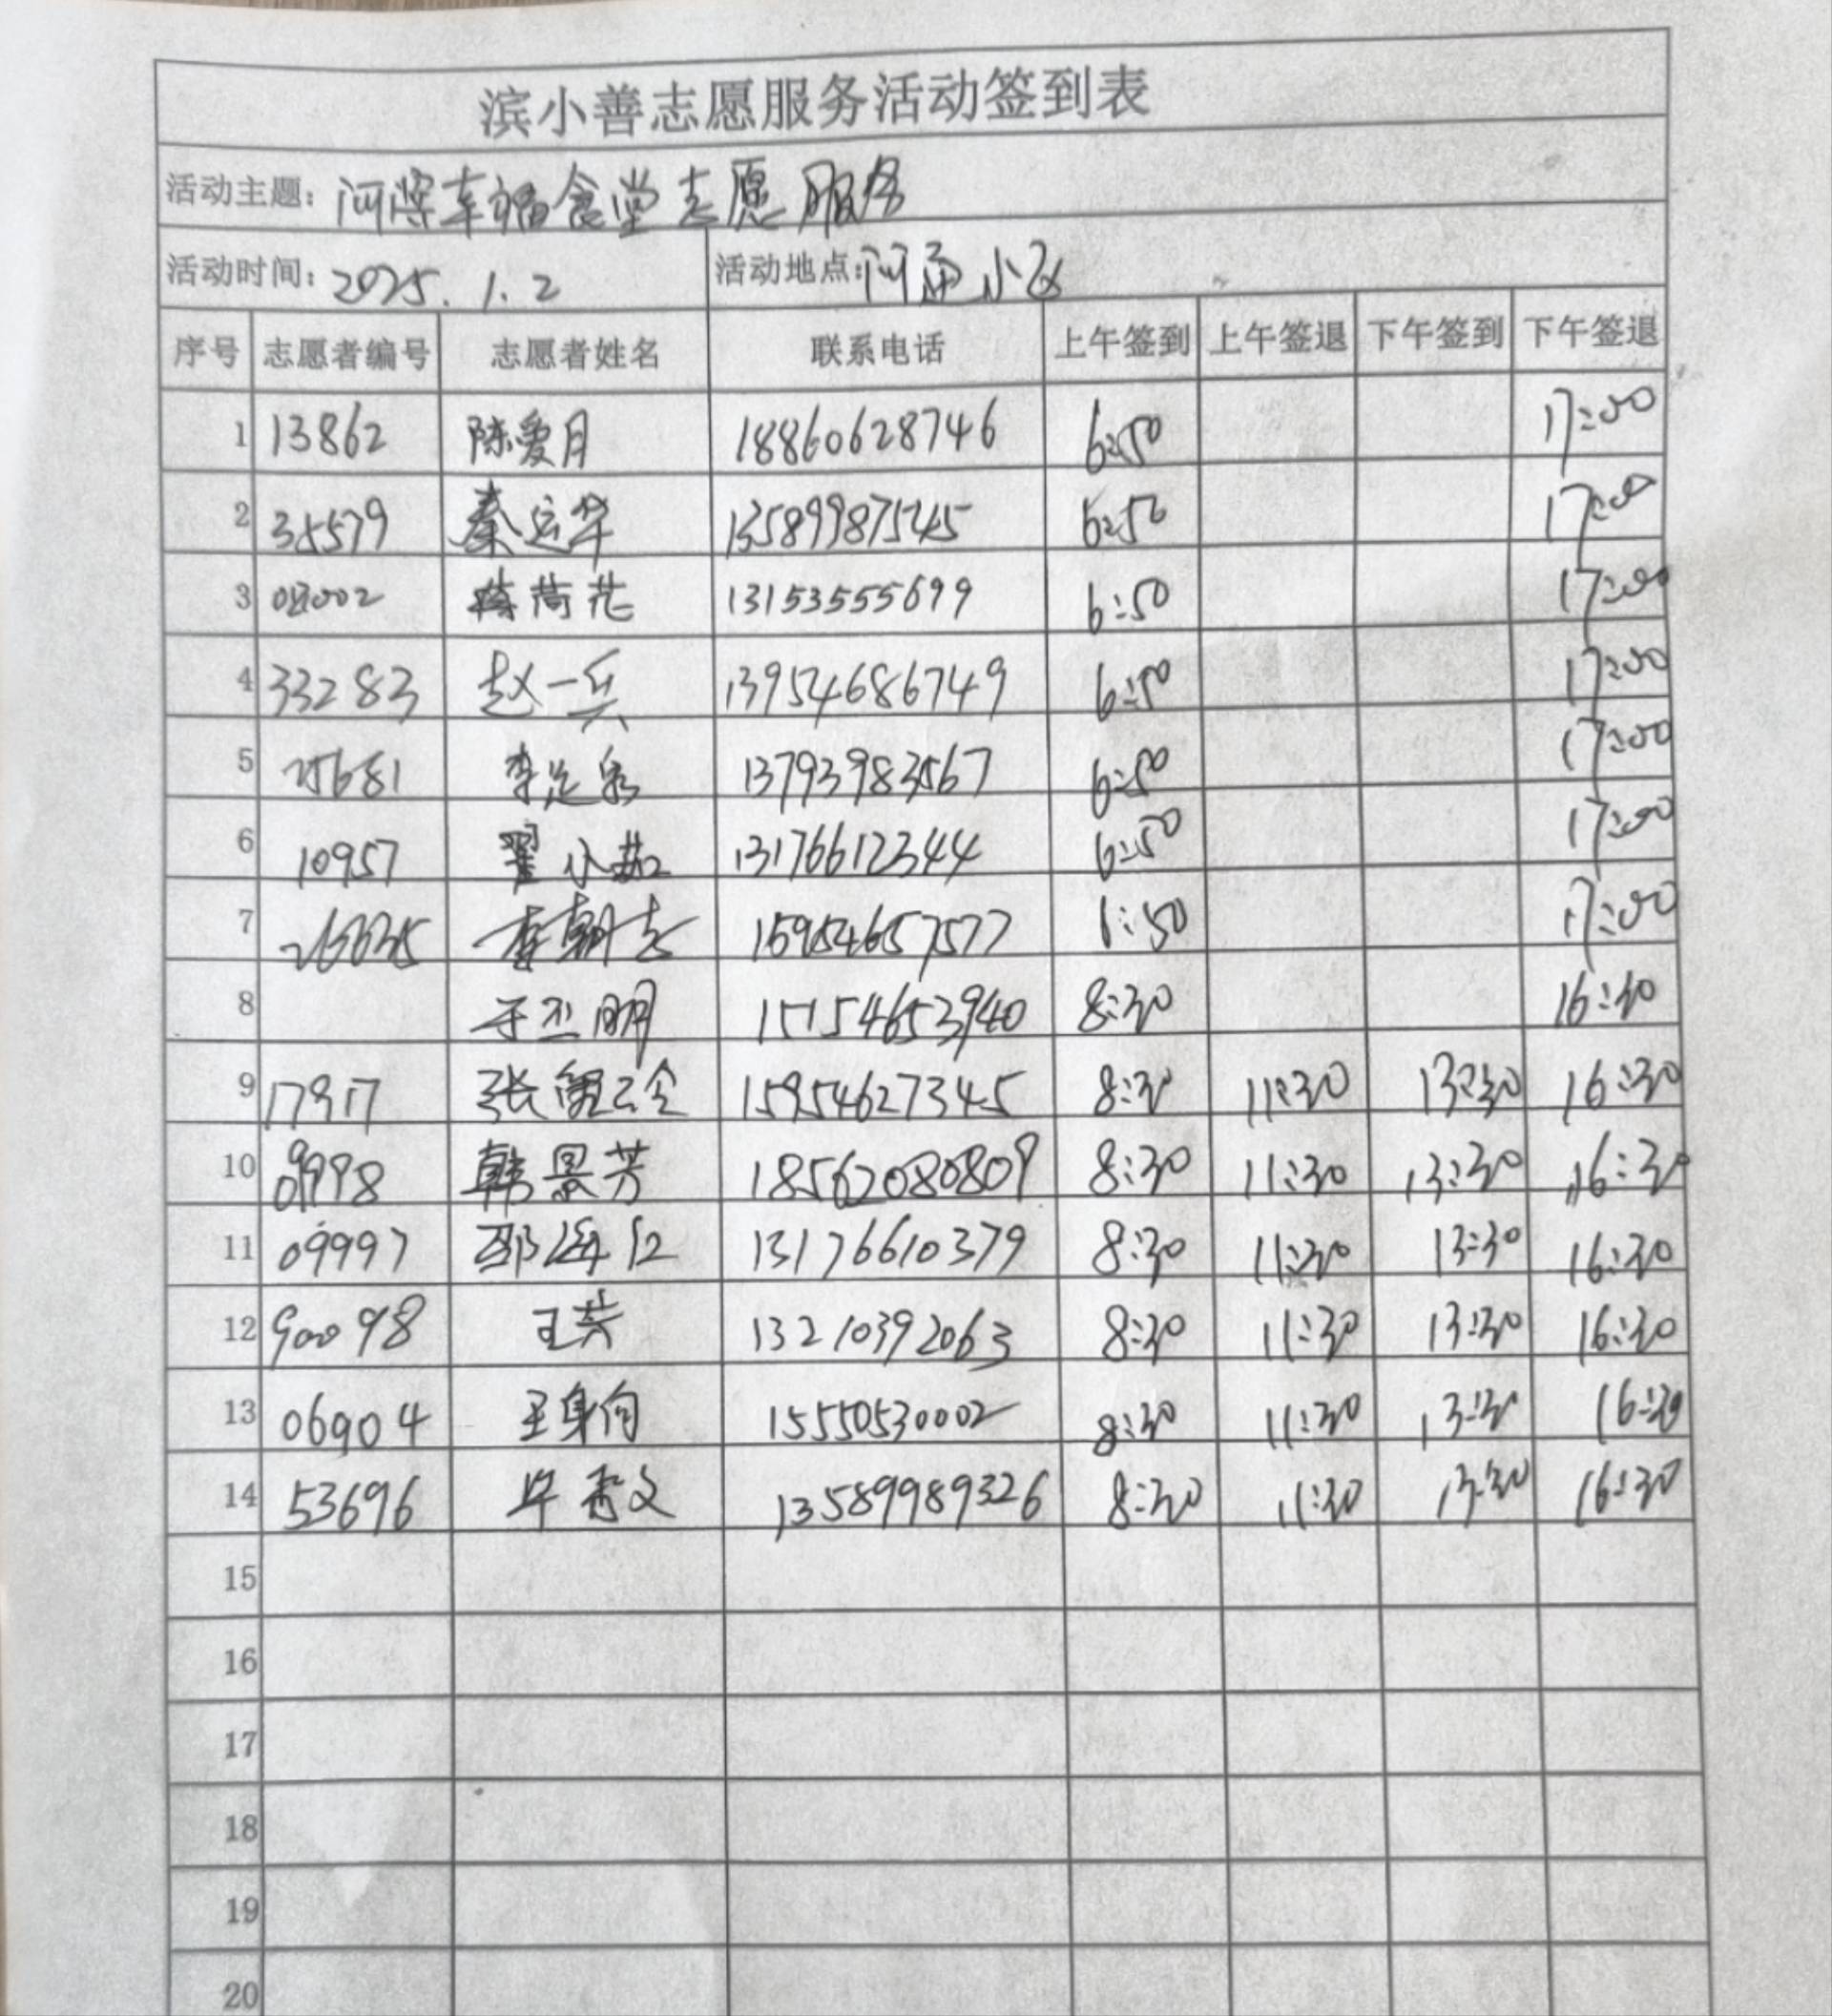 滨小善志愿服务活动签到表
活动主题: 幸福食堂志愿服务
活动时间: 2025.1.2 活动地点: 小区
序号 志愿者编号 志愿者姓名 联系电话 上午签到 上午签退 下午签到 下午签退
1 13862 陈爱月 18860628746 6:50 17:00
2 35579 秦运华 13589987545 6:50 17:00
3 荷花 13153555699 6:50 17:00
4 33283 赵一兵 13954686749 6:50 17:00
5 25681 李 13793983567 6:50 17:00
6 10957 翟小茹 13176612344 6:50 17:00
7 李朝志 15954657577 6:50 17:00
8 明 15154653940 8:30 16:30
9 17917 张 15954627345 8:30 11:30 13:30 16:30
10 09998 韩景芳 18562080809 8:30 11:30 13:30 16:30
11 09997 邵海红 13176610379 8:30 11:30 13:30 16:30
12 90098 王芳 13210392063 8:30 11:30 13:30 16:30
13 06904 王身向 15550530002 8:30 11:30 13:30 16:30
14 53696 毕秀文 13589989326 8:30 11:30 13:30 16:30
15
16
17
18
19
20